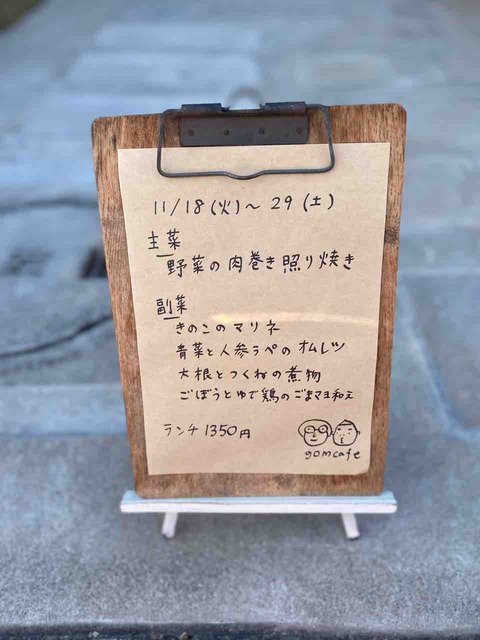 11/18(火)～29(土)
主菜
野菜の肉巻き照り焼き
副菜
きのこのマリネ
青菜と人参ラペのオムレツ
大根とつくねの煮物
ごぼうとゆで鶏のごまマヨ和え
ランチ1350円
gomcafe